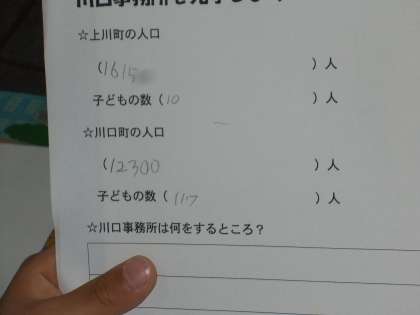 ☆上川町の人口
(1615 )人
子どもの数(10 )人
☆川口町の人口
(12300 )人
子どもの数(117 )人
☆川口事務所は何をするところ?